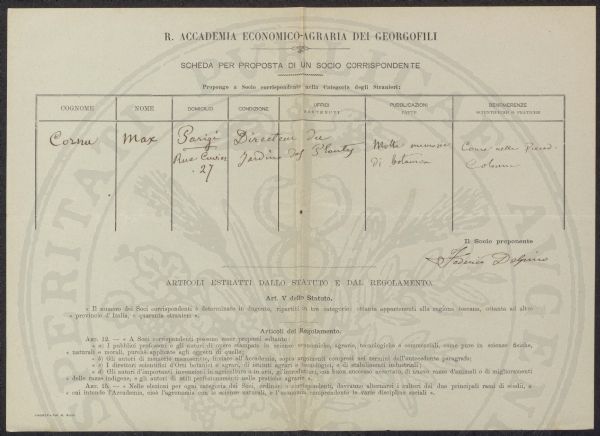 R. ACCADEMIA ECONOMICO-AGRARIA DEI GEORGOFILI
SCHEDA PER PROPOSTA DI UN SOCIO CORRISPONDENTE
Propongo a Socio corrispondente nella Categoria degli Stranieri:
COGNOME NOME DOMICILIO CONDIZIONE UFFICI PUBBLICAZIONI BENEMERENZE
SOSTENUTI FATTE SCIENTIFICHE O PRATICHE
Cornu Max Parigi Directeur du Molte memorie Come nella
Rue Cuvier Jardin des Plantes di botanica
27
Il Socio proponente
Federico Delpino
ARTICOLI ESTRATTI DALLO STATUTO E DAL REGOLAMENTO.
Art. V dello Statuto.
« Il numero dei Soci corrispondenti è determinato in dugento, ripartiti in tre categorie: ottanta appartenenti alla regione toscana, ottanta ad altre
« provincie d'Italia, e quaranta stranieri ».
Articoli del Regolamento.
ART. 12. — « A Soci corrispondenti possono esser proposti soltanto:
« a) I pubblici professori e gli autori di opere stampate in scienze economiche, agrarie, tecnologiche e commerciali, come pure in scienze fisiche,
« naturali e morali, purchè applicate agli oggetti di quelle;
« b) Gli autori di memorie manoscritte, inviate all'Accademia, sopra argomenti compresi nei termini dell'antecedente paragrafo;
« c) I direttori scientifici d'Orti botanici e agrari, di istituti agrari e tecnologici, e di stabilimenti industriali;
« d) Gli autori d'importanti invenzioni in agricoltura o in arti, gl'introduttori, con buon successo accertato, di nuove razze d'animali o di miglioramenti
« delle razze indigene, e gli autori di utili perfezionamenti nelle pratiche agrarie ».
ART. 15. — « Nelle elezioni per ogni categoria dei Soci, ordinari e corrispondenti, dovranno alternarsi i cultori dei due principali rami di studii, a
« cui intende l'Accademia, cioè l'agronomia con le scienze naturali, e l'economia comprendente le varie discipline sociali ».